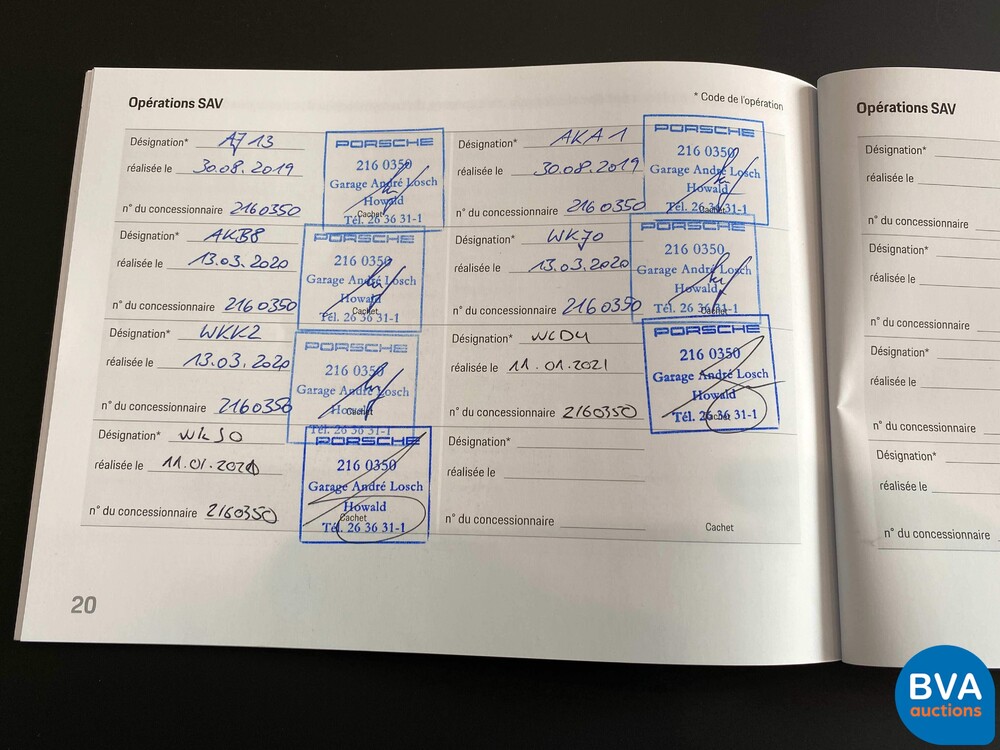 Opérations SAV
* Code de l'opération
Désignation* AJ13
réalisée le 30.08.2019
n° du concessionnaire 2160350
PORSCHE
216 0350
Garage André Losch
Howald
Cachet
Tél. 26 36 31-1
Désignation* AKA1
réalisée le 30.08.2019
n° du concessionnaire 2160350
PORSCHE
216 0350
Garage André Losch
Howald
Cachet
Tél. 26 36 31-1
Désignation* AKB8
réalisée le 13.03.2020
n° du concessionnaire 2160350
PORSCHE
216 0350
Garage André Losch
Howald
Cachet
Tél. 26 36 31-1
Désignation* WKJ0
réalisée le 13.03.2020
n° du concessionnaire 2160350
PORSCHE
216 0350
Garage André Losch
Howald
Cachet
Tél. 26 36 31-1
Désignation* WKK2
réalisée le 13.03.2020
n° du concessionnaire 2160350
PORSCHE
216 0350
Garage André Losch
Howald
Cachet
Tél. 26 36 31-1
Désignation*
réalisée le 11.01.2021
n° du concessionnaire 2160350
PORSCHE
216 0350
Garage André Losch
Howald
Cachet
Tél. 26 36 31-1
Désignation*
réalisée le 11.01.2021
n° du concessionnaire 2160350
PORSCHE
216 0350
Garage André Losch
Howald
Cachet
Tél. 26 36 31-1
Désignation*
réalisée le
n° du concessionnaire
Cachet
20
Opérations SAV
Désignation*
réalisée le
n° du concessionnaire
Désignation*
réalisée le
n° du concessionnaire
Désignation*
réalisée le
n° du concessionnaire
Désignation*
réalisée le
n° du concessionnaire
BVA
auctions